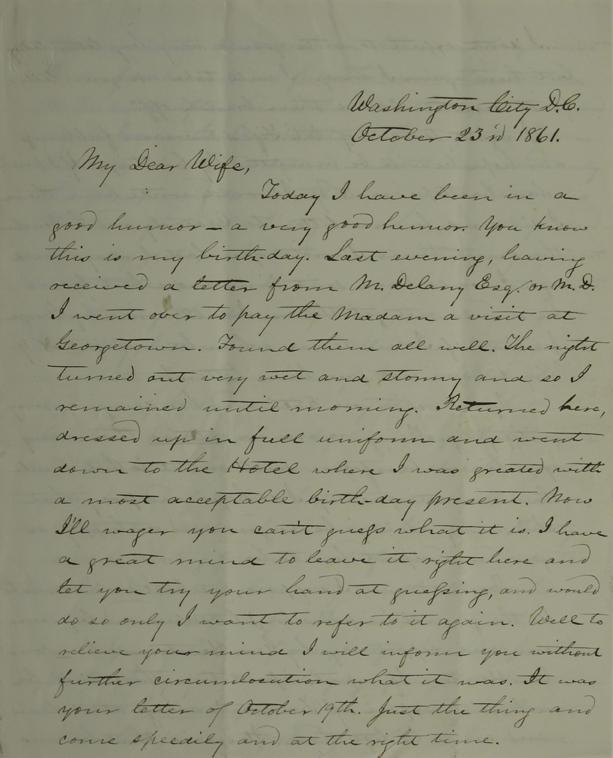 Washington City D.C.
October 23rd 1861.
My Dear Wife,
Today I have been in a
good humor – a very good humor. You know
this is my birth-day. Last evening, having
received a letter from M. Delany Esq. or M.D.
I went over to pay the Madam a visit at
Georgetown. Found them all well. The night
turned out very wet and stormy and so I
remained until morning. Returned here,
dressed up in full uniform and went
down to the Hotel where I was greated with
a most acceptable birth-day present. Now
I'll wager you can't guess what it is. I have
a great mind to leave it right here and
let you try your hand at guessing, and would
do so only I want to refer to it again. Well to
relieve your mind I will inform you without
further circumlocution what it was. It was
your letter of October 19th. Just the thing and
come speedily and at the right time.